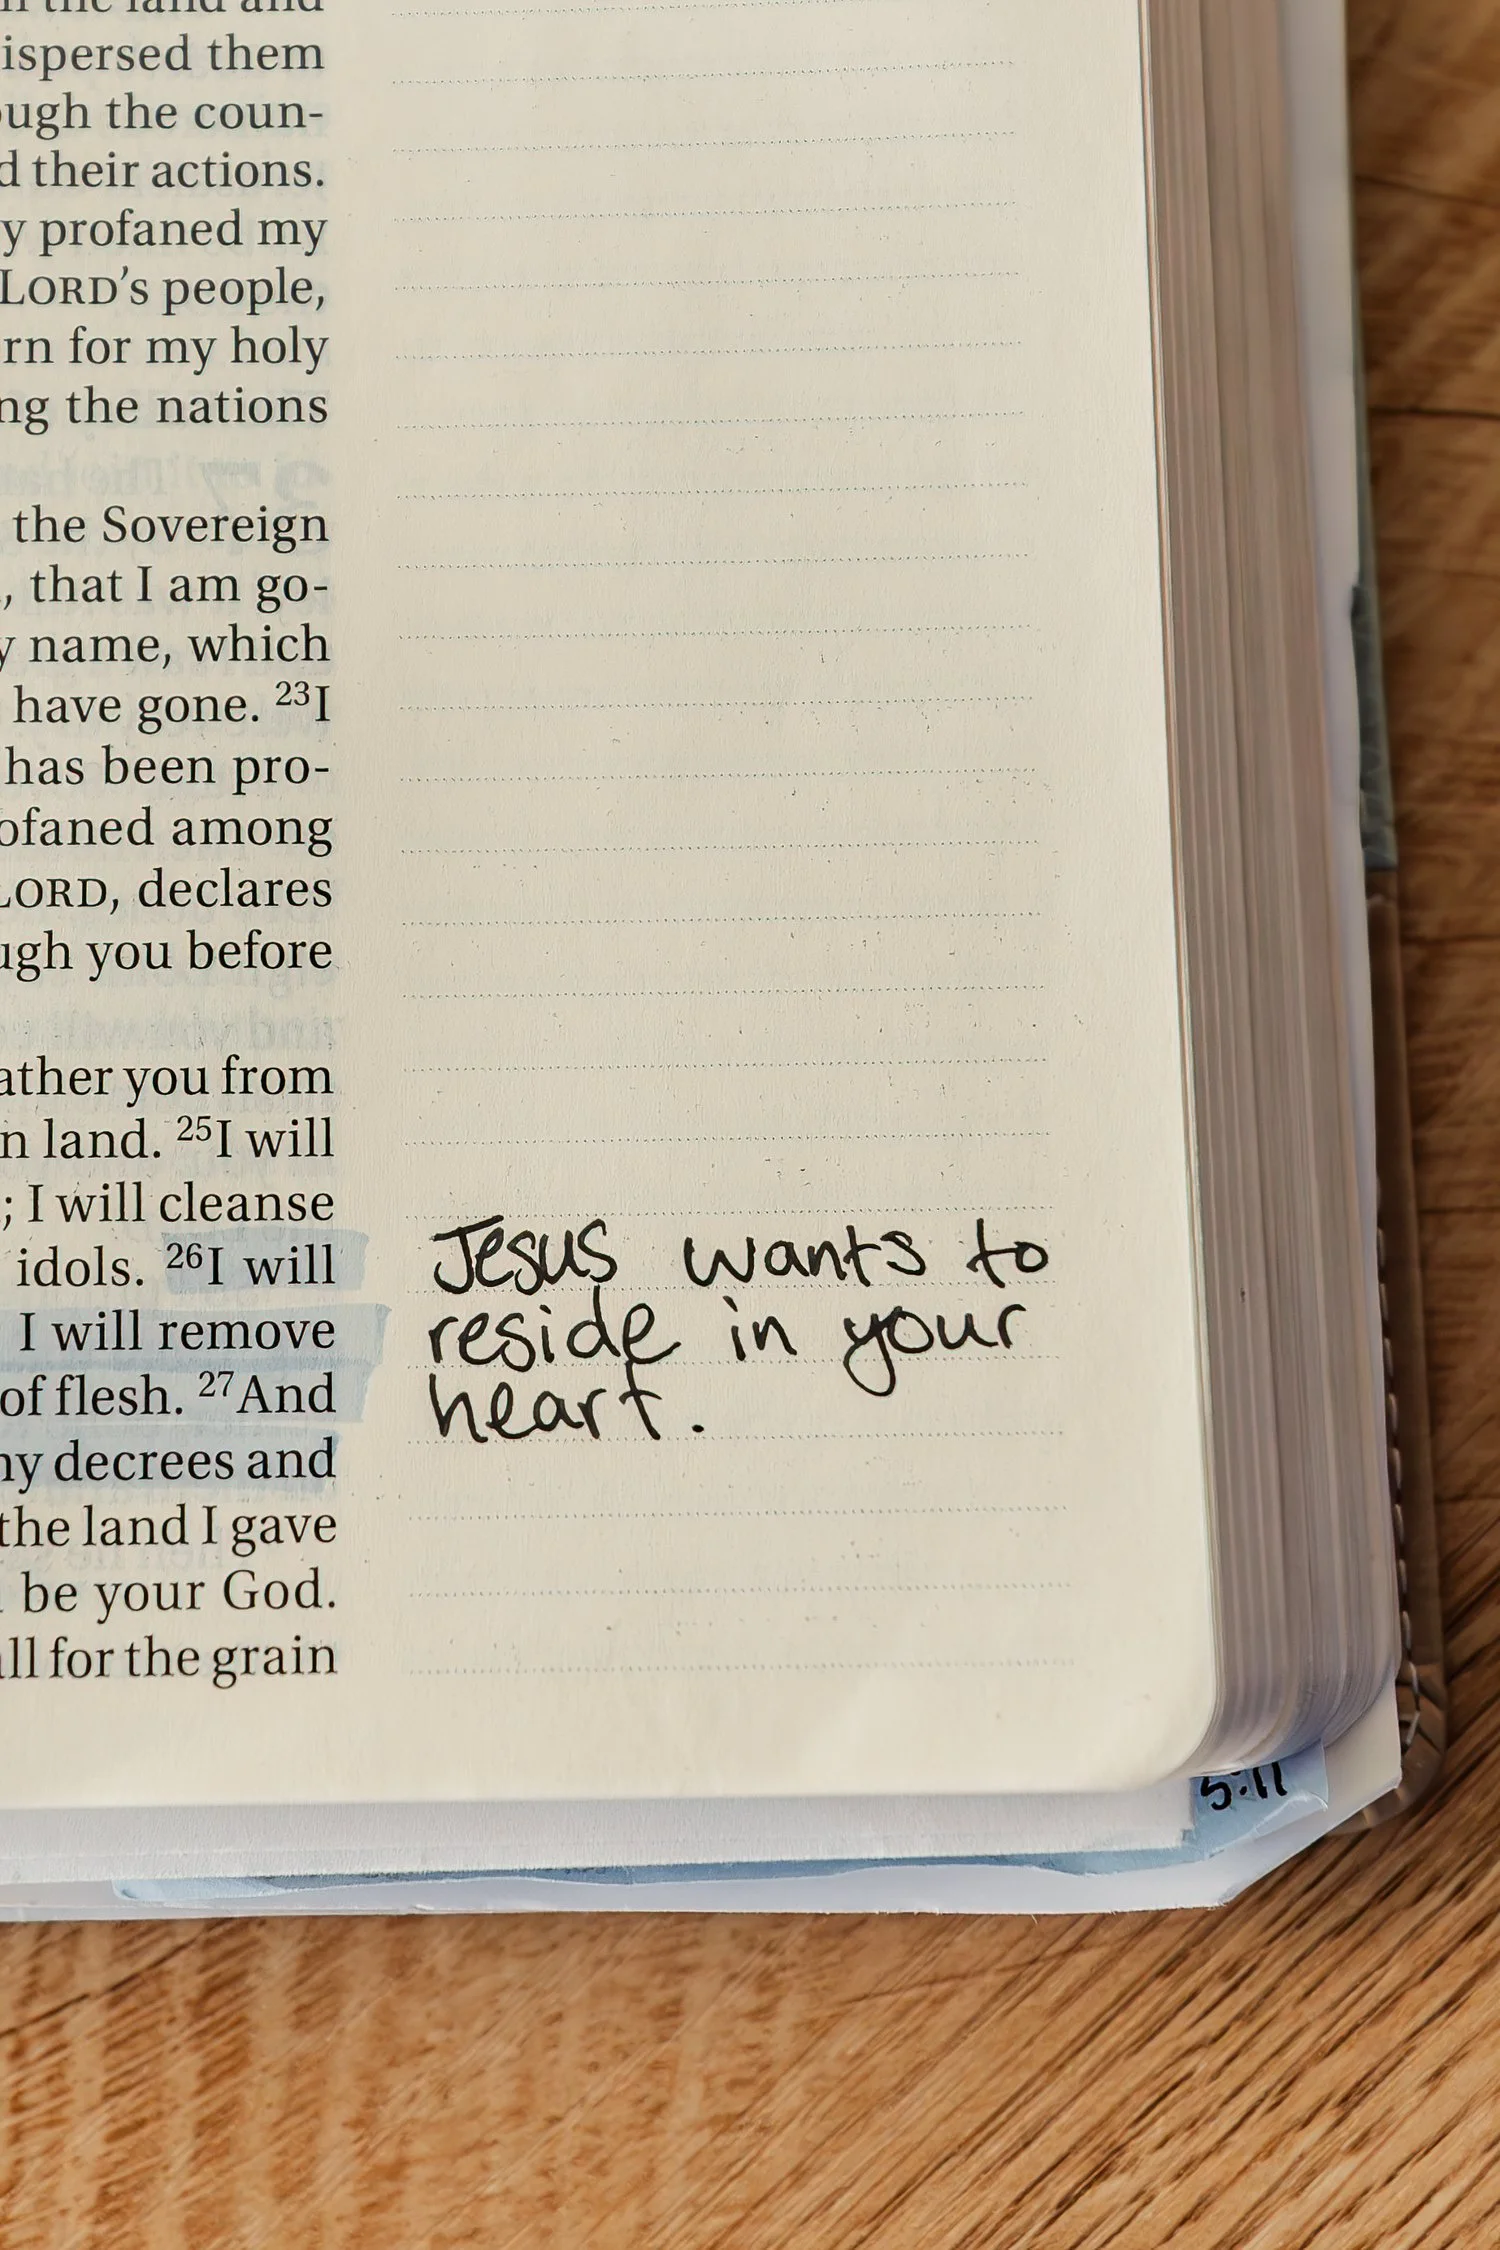 n the land and
ispersed them
ough the coun-
d their actions.
y profaned my
LORD's people,
rn for my holy
ng the nations
the Sovereign
, that I am go-
y name, which
have gone. 23I
has been pro-
ofaned among
LORD, declares
ugh you before
ather you from
n land. 25I will
; I will cleanse
idols. 26I will
I will remove
of flesh. 27And
my decrees and
the land I gave
be your God.
all for the grain
Jesus wants to
reside in your
heart.
5:11